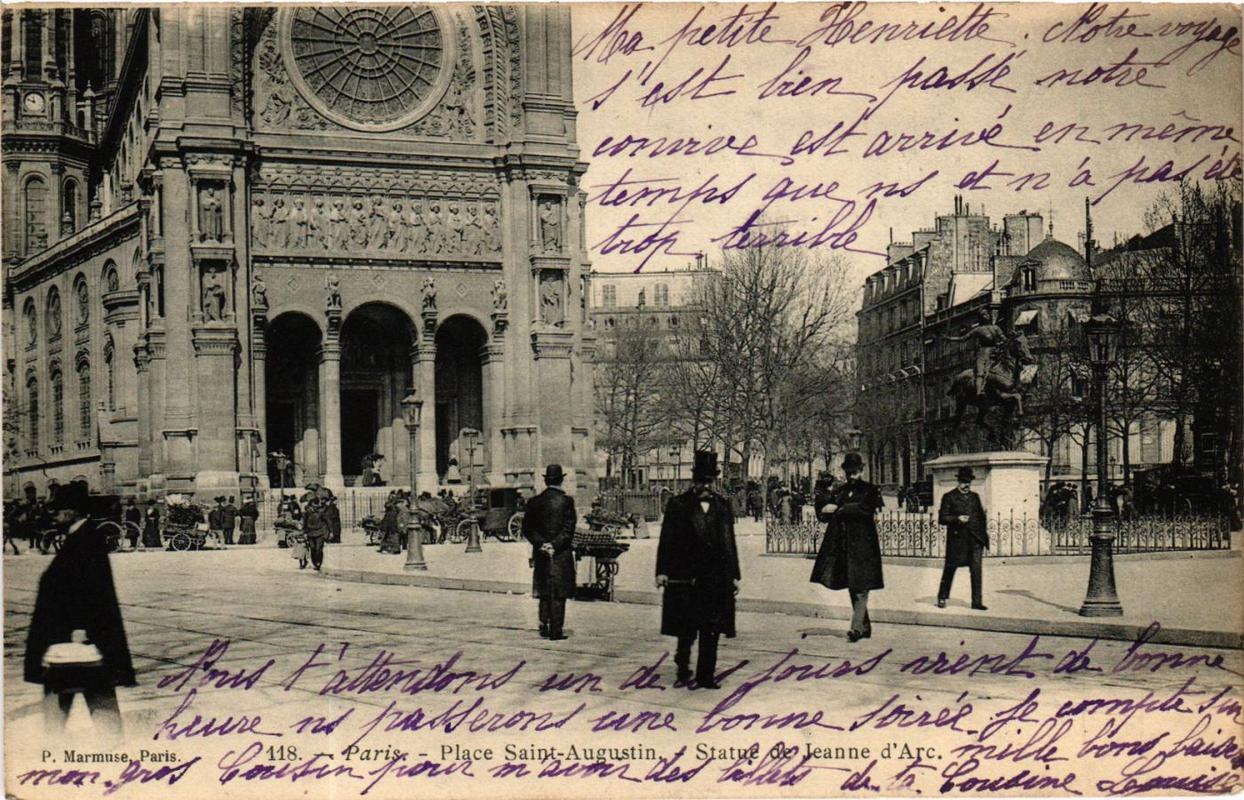 Ma petite Henriette. Notre voyage
s'est bien passé notre
convive est arrivé en même
temps que ns et n'a pas été
trop terrible
Nous t'attendons un de ces jours vient de bonne
heure ns passerons une bonne soirée. Je compte sur
mon gros Cousin pour m'avoir des billets de ta Cousine Louise
mille bons baisers
P. Marmuse, Paris.
118. - Paris. - Place Saint-Augustin. - Statue de Jeanne d'Arc.